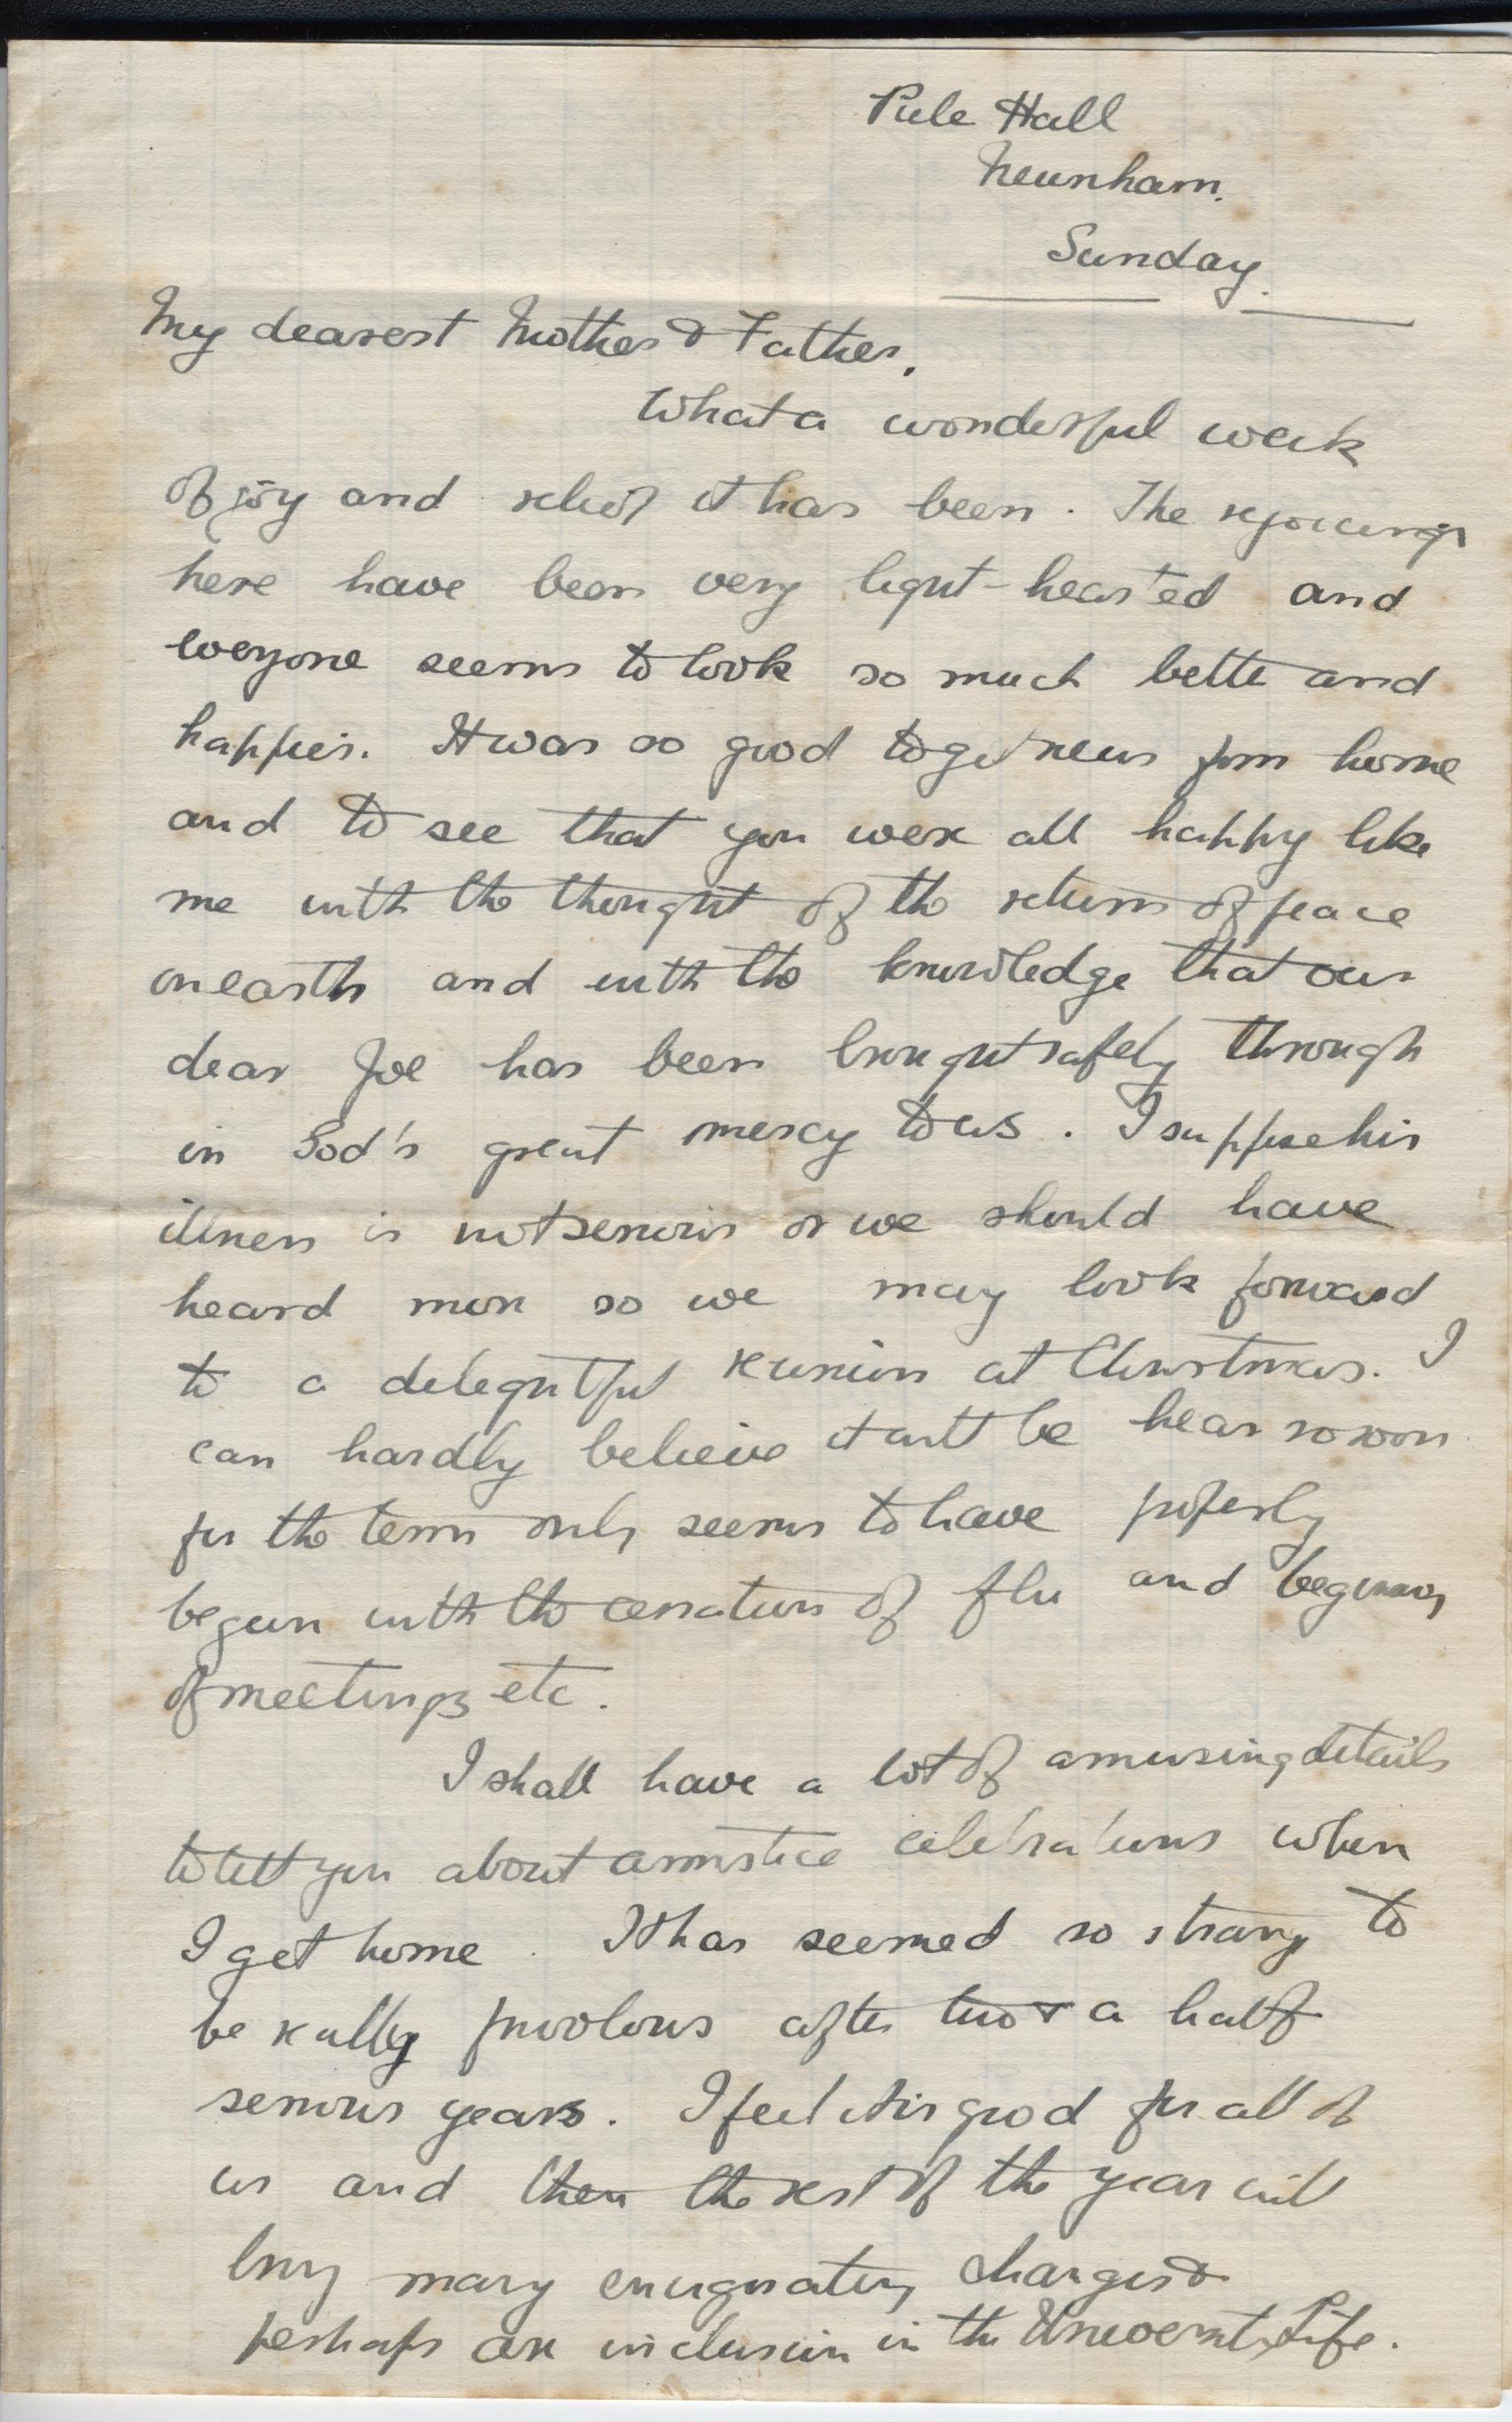 Peile Hall
Newnham.
Sunday.
My dearest Mother & Father,
What a wonderful week
of joy and relief it has been. The rejoicings
here have been very light-hearted and
everyone seems to look so much better and
happier. It was so good to get news from home
and to see that you were all happy like
me with the thought of the return of peace
on earth and with the knowledge that our
dear Joe has been brought safely through
in God's great mercy to us. I suppose his
illness is not serious or we should have
heard more so we may look forward
to a delightful reunion at Christmas. I
can hardly believe it will be hear so soon
for the term only seems to have properly
begun with the cessation of flu and beginning
of meetings etc.
I shall have a lot of amusing details
to tell you about armistice celebrations when
I get home. It has seemed so strange to
be really frivolous after two & a half
serious years. I feel it is good for all of
us and then the rest of the year will
bring many invigorating changes &
perhaps an inclusion in the University Life.